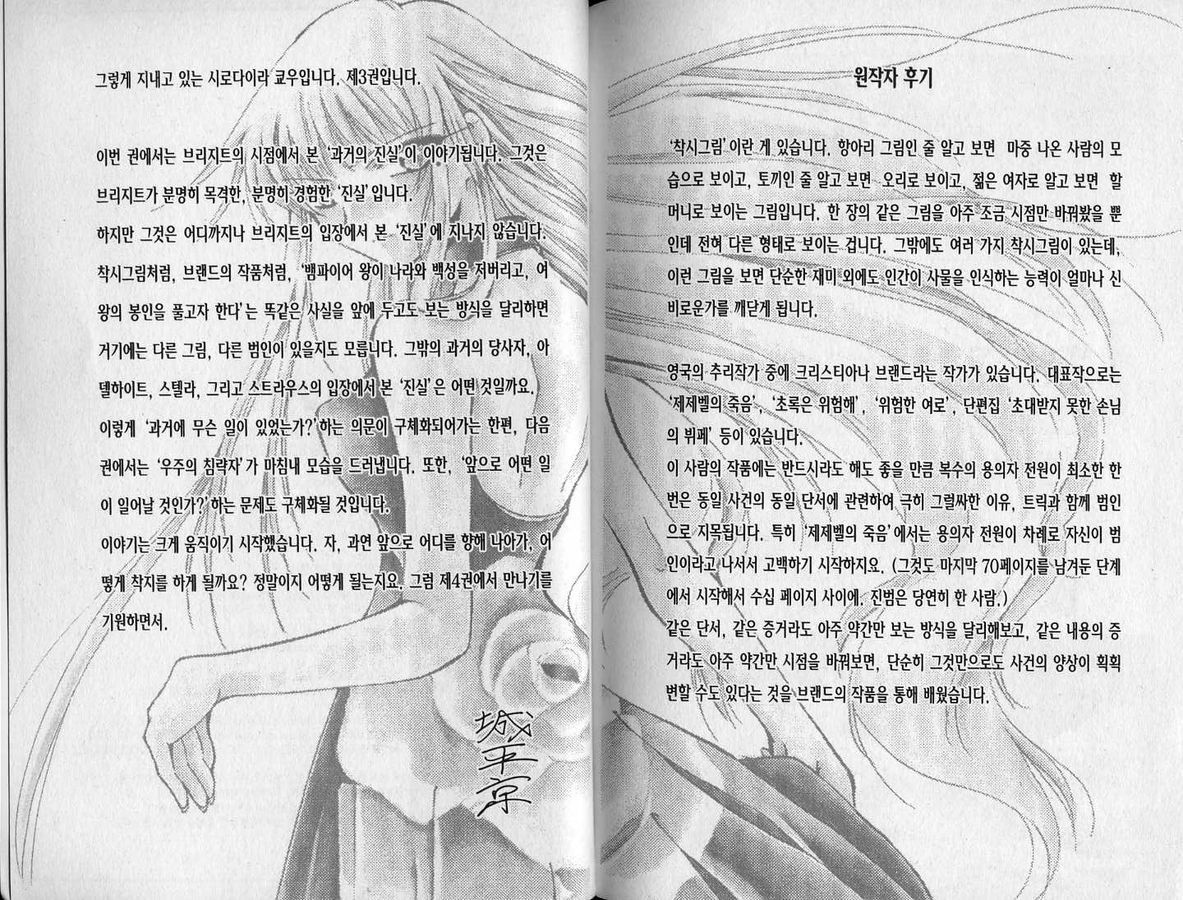 원작자 후기
'착시그림'이란 게 있습니다. 항아리 그림인 줄 알고 보면 마중 나온 사람의 모
습으로 보이고, 토끼인 줄 알고 보면 오리로 보이고, 젊은 여자로 알고 보면 할
머니로 보이는 그림입니다. 한 장의 같은 그림을 아주 조금 시점만 바꿔봤을 뿐
인데 전혀 다른 형태로 보이는 겁니다. 그밖에도 여러 가지 착시그림이 있는데,
이런 그림을 보면 단순한 재미 외에도 인간이 사물을 인식하는 능력이 얼마나 신
비로운가를 깨닫게 됩니다.
영국의 추리작가 중에 크리스티아나 브랜드라는 작가가 있습니다. 대표작으로는
'제제벨의 죽음', '초록은 위험해', '위험한 여로', 단편집 '초대받지 못한 손님
의 뷔페' 등이 있습니다.
이 사람의 작품에는 반드시라도 해도 좋을 만큼 복수의 용의자 전원이 최소한 한
번은 동일 사건의 동일 단서에 관련하여 극히 그럴싸한 이유, 트릭과 함께 범인
으로 지목됩니다. 특히 '제제벨의 죽음'에서는 용의자 전원이 차례로 자신이 범
인이라고 나서서 고백하기 시작하지요. (그것도 마지막 70페이지를 남겨둔 단계
에서 시작해서 수십 페이지 사이에. 진범은 당연히 한 사람.)
같은 단서, 같은 증거라도 아주 약간만 보는 방식을 달리해보고, 같은 내용의 증
거라도 아주 약간만 시점을 바꿔보면, 단순히 그것만으로도 사건의 양상이 획획
변할 수도 있다는 것을 브랜드의 작품을 통해 배웠습니다.
그렇게 지내고 있는 시로다이라 쿄우입니다. 제3권입니다.
이번 권에서는 브리지트의 시점에서 본 '과거의 진실'이 이야기됩니다. 그것은
브리지트가 분명히 목격한, 분명히 경험한 '진실'입니다.
하지만 그것은 어디까지나 브리지트의 입장에서 본 '진실'에 지나지 않습니다.
착시그림처럼, 브랜드의 작품처럼, '뱀파이어 왕이 나라와 백성을 저버리고, 여
왕의 봉인을 풀고자 한다'는 똑같은 사실을 앞에 두고도 보는 방식을 달리하면
거기에는 다른 그림, 다른 범인이 있을지도 모릅니다. 그밖의 과거의 당사자, 아
델하이트, 스텔라, 그리고 스트라우스의 입장에서 본 '진실'은 어떤 것일까요.
이렇게 '과거에 무슨 일이 있었는가?'하는 의문이 구체화되어가는 한편, 다음
권에서는 '우주의 침략자'가 마침내 모습을 드러냅니다. 또한, '앞으로 어떤 일
이 일어날 것인가?'하는 문제도 구체화될 것입니다.
이야기는 크게 움직이기 시작했습니다. 자, 과연 앞으로 어디를 향해 나아가, 어
떻게 착지를 하게 될까요? 정말이지 어떻게 될는지요. 그럼 제4권에서 만나기를
기원하면서.
城
平
京